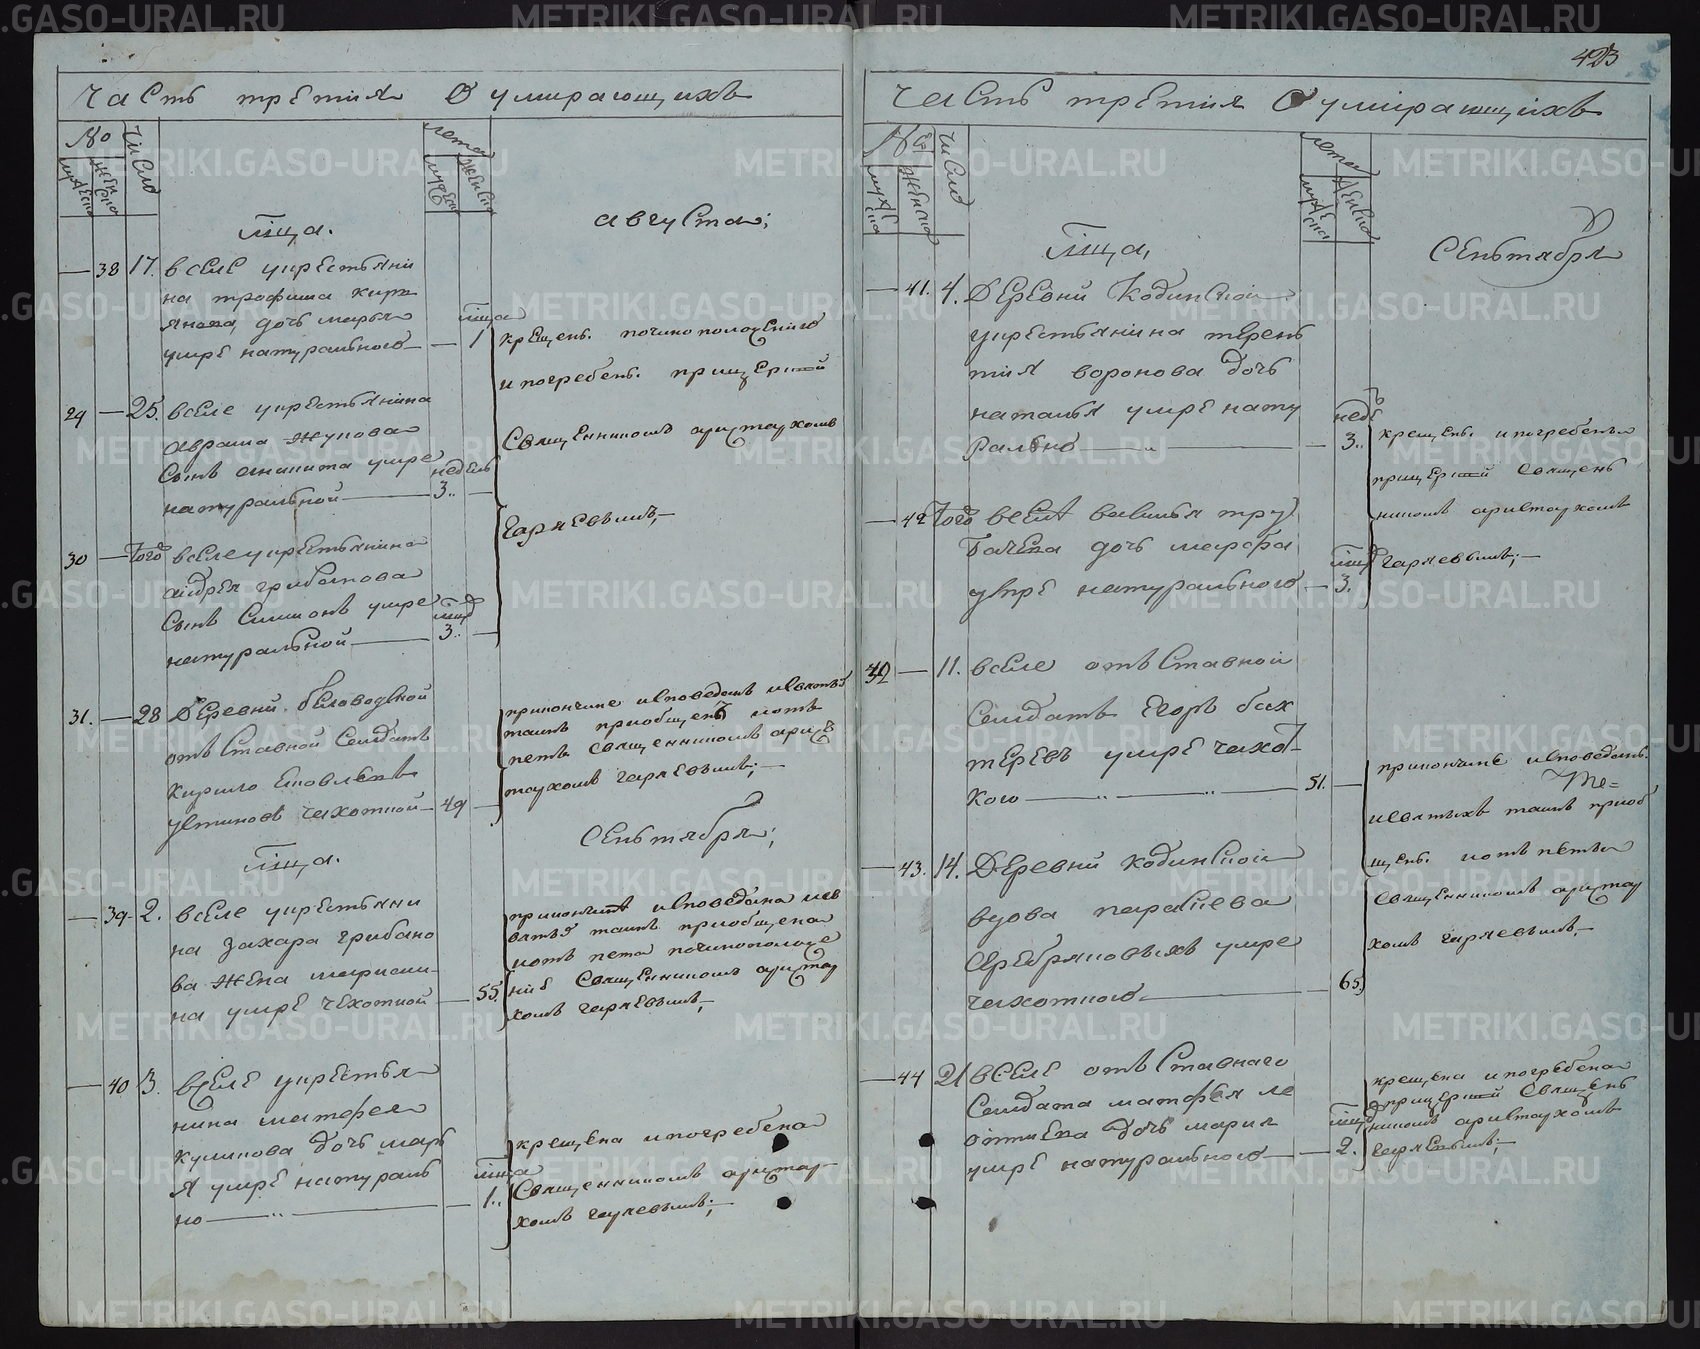 Часть третия О умирающихъ
№
Число
лета
мужеска
женска
мужеска
женска
Лица.
Августа;
38 17. в селе у крестьяни
на трофима кирь
янова, дочь марья
умре натуральною 1
крещенъ. по чиноположению
и погребенъ. при церкви
Священникомъ аристархомъ
Гаряевымъ,
29 25. в селе у крестьянина
Аврама Жукова
Сынъ аникита умре
натуральной
недель
3..
30 Того в селе у крестьянина
андрея грибанова
Сынъ Симионъ умре
натуральной
3..
31. 28 Деревни беловодской
отъ Ставной Солдатъ
Кирило Яковлевъ
Устиновъ чихотной 49
при кончине исповеданъ и Святыхъ
таинъ приобщенъ и отъ
петъ Священникомъ арис
тархомъ гаряевымъ;
Сеньтября;
Лица.
39 2. в селе у крестьяни
на Захара грибано
ва Жена
на умре чехотной 55.
при кончине исповедана и Св
ятыхъ таинъ приобщена
и отъ пета по чиноположе
ние Священникомъ аристар
хомъ гаряевымъ;
40 3. в селе у крестья
нина матфея
куликова дочь марь
я умре натураль
но 1..
крещена и погребена
Священникомъ аристар
хомъ гаряевымъ;
423
Часть третия О умирающихъ
№
Число
лета
мужеска
женска
Лица,
Сеньтября
41. 4. Деревни Кодинской
у крестьянина терень
тия воронова дочь
наталья умре нату
рально
неде
3..
крещенъ. и погребенъ
при церкви Священь
никомъ аристархомъ
гаряевымъ;
42 Того в селе василья тру
бачева дочь марфа
умре натурального 3.
32 11. в селе отъ Ставной
Солдатъ Егоръ бах
теревъ умре чахот
кою 51.
при кончине исповеданъ.
и Святыхъ таинъ приоб
щенъ. и отъ петъ
Священникомъ аристар
хомъ гаряевымъ,
43. 14. Деревни кодинской
вдова
Серебряковыхъ умре
чихотною 65.
44 21 в селе отъ Ставнаго
Солдата матфея ле
онтиева дочь мария
умре натурального 2.
крещена и погребена
при церкви Священь
никомъ аристархомъ
гаряевымъ;
METRIKI.GASO-URAL.RU